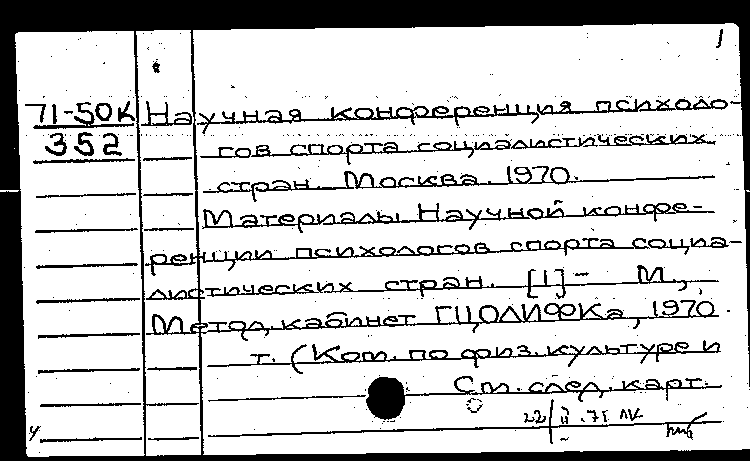 1
71-50к Научная конференция психоло-
352 гов спорта социалистических
стран. Москва. 1970.
Материалы Научной конфе-
ренции психологов спорта социа-
листических стран. [1]- М.,
Метод. кабинет ГЦОЛИФКа, 1970.
т. (Ком. по физ. культуре и
См. след. карт.
22/II.71